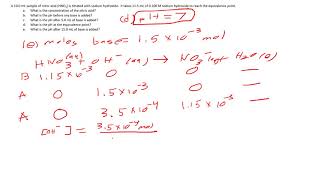 A 100 mL sample of nitric acid (HNO₃) is titrated with sodium hydroxide. It takes 11.5 mL of 0.100 M sodium hydroxide to reach the equivalence point.
a. What is the concentration of the nitric acid?
b. What is the pH before any base is added?
c. What is the pH after 5.0 mL of base is added?
d. What is the pH at the equivalence point?
e. What is the pH after 15.0 mL of base is added?
(d) pH = 7
(e) moles base = 1.5 × 10⁻³
HNO₃(aq) + OH⁻(aq) → NO₃⁻(aq) + H₂O(l)
B 1.15×10⁻³ 0 0 —
A 0 1.5×10⁻³ 0 —
A 0 3.5×10⁻⁴ 1.15×10⁻³ —
[OH⁻] = 3.5×10⁻⁴ mol